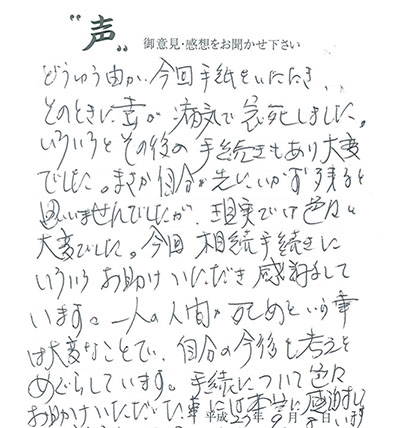 "声"
御意見・感想をお聞かせ下さい
どうゆう由か、今回手紙をいただき、
そのときに妻が病気で急死しました。
いろいろとその後の手続きもあり大変
でした。まさか自分が先にいかず残ると
思いませんでしたが、現実では色々
大変でした。今回相続手続きに
いろいろお助けいただき感謝して
います。一人の人間が死ぬという事
は大変なことで、自分の今後も考えを
めぐらしています。手続について色々
お助けいただいた事には本当に感謝して
平成 年 月 日 います